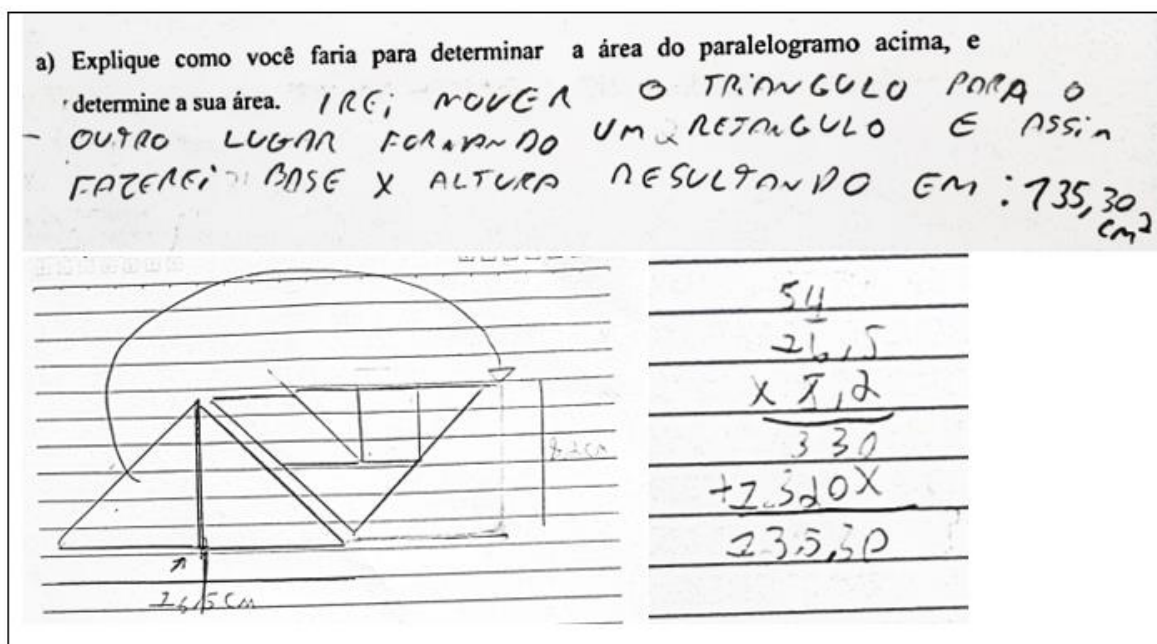 a) Explique como você faria para determinar a área do paralelogramo acima, e
determine a sua área. IREi MOVER O TRiANGULO PARA O
OUTRO LUGAR FORMANDO UM RETANGULO E ASSim
FAZEREi BASE X ALTURA RESULTANDO EM : 135,30
cm²
8,2cm
16,5 cm
54
16,5
x 8,2
330
+1320X
135,30